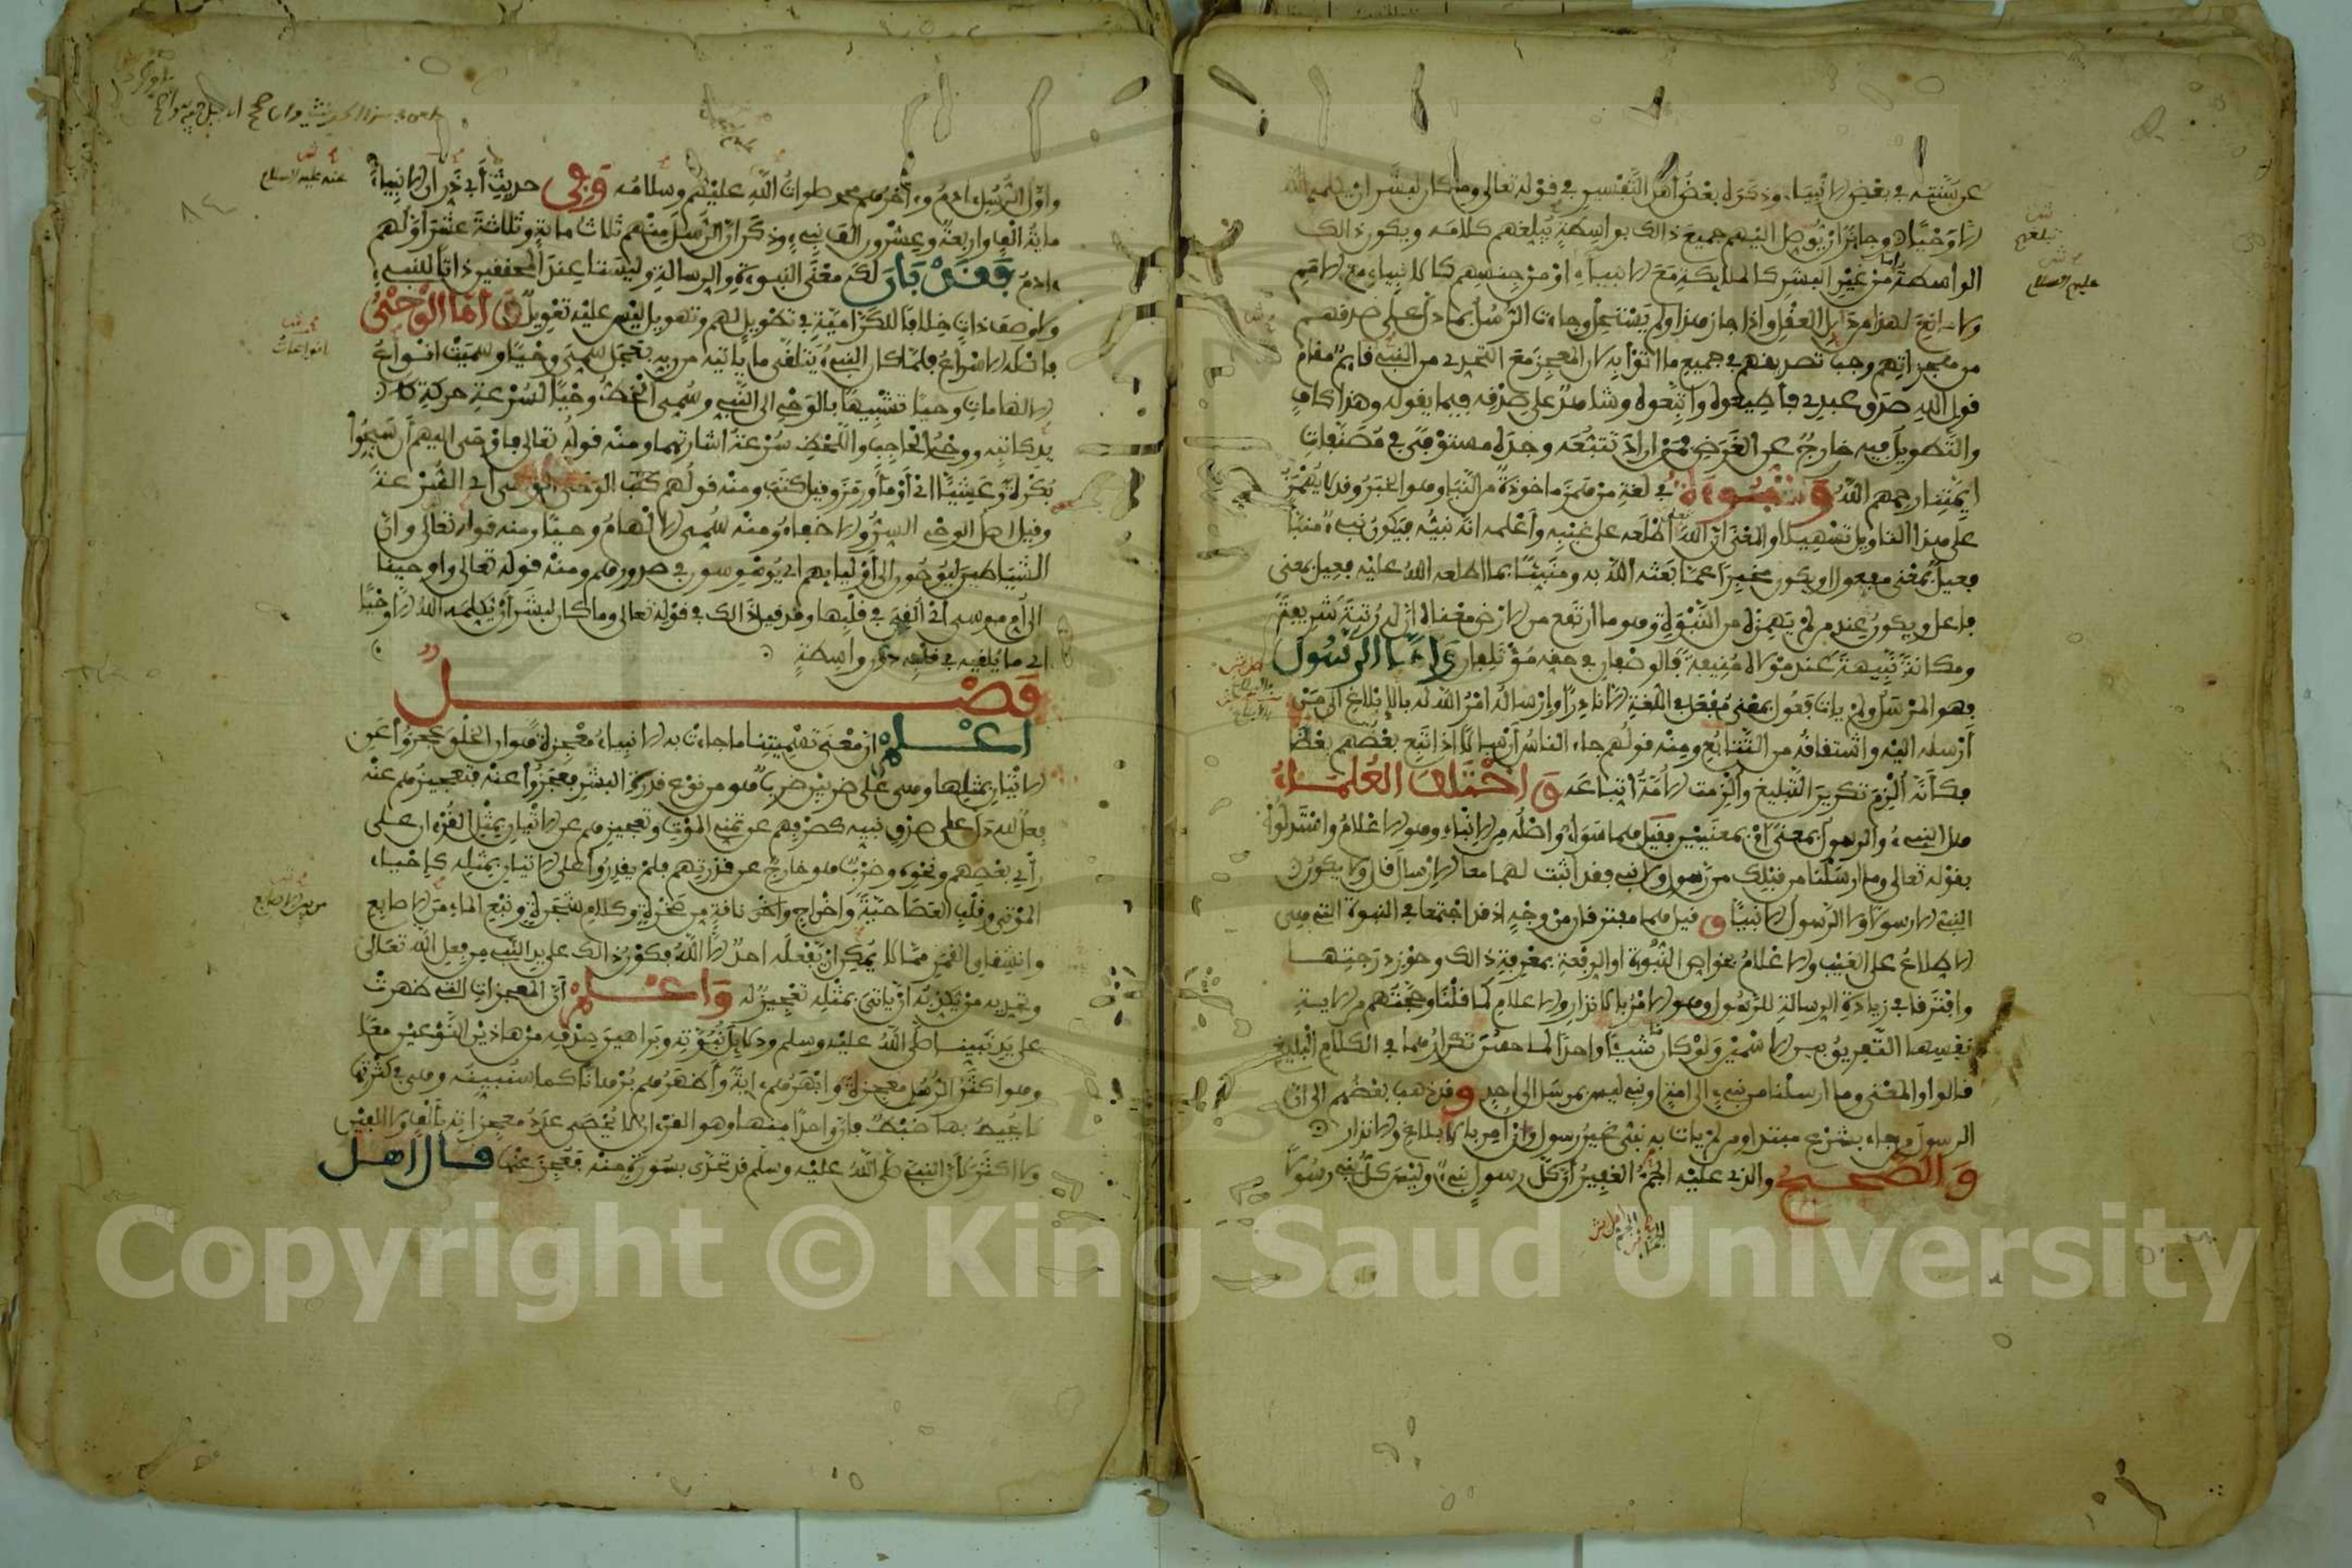 عن سنته في بعض الانبياء وذكره بعض اهل التفسير في قوله تعالى وما كان لبشر ان يكلمه الله
الا وحيا وجائز ان يوصل اليهم جميع ذالك بواسطة تبلغهم كلامه ويكون ذالك
الواسطة اما من غير البشر كالملايكة مع الانبياء او من جنسهم كالانبياء مع الامم
ولا مانع لهذا من دليل العقل واذا جاز هذا ولم يستحل وجاءت الرسل بما دل على صدقهم
من معجزاتهم وجب تصديقهم في جميع ما اتوا به لان المعجز مع التحدي من النبي قايم مقام
قول الله صدق عبدي فاطيعوه واتبعوه وشاهد على صدقه فيما يقوله وهذا كاف
والتطويل فيه خارج عن الغرض فمن اراد تتبعه وجده مستوفى في مصنفات
ايمتنا رحمهم الله والنبوءة في لغة من همز ماخوذة من النبا وهو الخبر وقد لا يهمز
على هذا التاويل تسهيلا والمعنى ان الله اطلعه على غيبه واعلمه انه نبيه فيكون نبيء منبأ
فعيل بمعنى مفعول او يكون مخبرا عما بعثه الله به ومنبئا بما اطلعه الله عليه فعيل بمعنى
فاعل ويكون عند من لم يهمزه من النبوة وهو ما ارتفع من الارض معناه ان له رتبة شريفة
ومكانة نبيهة عند مولاه منيفة فالوصفان في حقه مؤتلفان واما الرسول
فهو المرسل ولم يات فعول بمعنى مفعل في اللغة الا نادرا وارساله امر الله له بالابلاغ الى من
ارسله اليه واشتقاقه من التتابع ومنه قولهم جاء الناس ارسالا اذا تبع بعضهم بعضا
فكأنه الزم تكرير التبليغ والزمت الامة اتباعه واختلف العلماء
هل النبيء والرسول بمعنى او بمعنيين فقيل هما سواء واصله من الانباء وهو الاعلام واستدلوا
بقوله تعالى وما ارسلنا من قبلك من رسول ولا نبي فقد اثبت لهما معا الارسال قال ولا يكون
النبي الا رسولا ولا الرسول الا نبيا وقيل هما مفترقان من وجه اذ قد اجتمعا في النبوة التي هي
الاطلاع على الغيب والاعلام بخواص النبوة او الرفعة بمعرفة ذالك وحوز درجتها
وافترقا في زيادة الرسالة للرسول وهو الامر بالانذار والاعلام كما قلنا وحجتهم من الاية
نفسها التفريق بين الاسمين ولو كان شيئا واحدا لما حسن تكرارهما في الكلام البليغ
قالوا والمعنى وما ارسلنا من نبيء الى امة او نبي ليس بمرسل الى احد وقد ذهب بعضهم الى ان
الرسول من جاء بشرع مبتدا ومن لم يات به نبي غير رسول وان امر بالابلاغ والانذار
والصحيح والذي عليه الجم الغفير ان كل رسول نبيء وليس كل نبي رسولا
واول الرسل ادم وءاخرهم محمد صلوات الله عليهم وسلامه وفي حديث أبي ذر أن الانبياء
ماية الف واربعة وعشرون الف نبيء وذكر ان الرسل منهم ثلاث ماية وثلاثة عشر اولهم
ءادم فقد بان لك معنى النبوءة والرسالة وليستا عند المحققين ذاتا للنبيء
ولا وصف ذات خلافا للكرامية في تطويل لهم وتهويل ليس عليه تعويل واما الوحي
فاصله الاسراع فلما كان النبيء يتلقى ما ياتيه من ربه بعجل سمي وحيا وسميت انواع
الالهامات وحيا تشبيها بالوحي الى النبيء وسمي الخط وحيا لسرعة حركة
يد كاتبه ووحي الحاجب واللحظ سرعة اشارتهما ومنه قوله تعالى فاوحى اليهم أن سبحوا
بكرة وعشيا اي أومأ ورمز وقيل كتب ومنه قولهم الوحى الوحى أي السرعة
وقيل اصل الوحي السر والاخفاء ومنه سمي الالهام وحيا ومنه قوله تعالى وان
الشياطين ليوحون الى أوليايهم اي يوسوسون في صدورهم ومنه قوله تعالى واوحينا
الى أم موسى أي ألقي في قلبها وقد قيل ذالك في قوله تعالى وما كان لبشر أن يكلمه الله الا وحيا
اي ما يلقيه في قلبه دون واسطة
فصل
اعلم ان معنى تسميتنا ما جاءت به الانبياء معجزة هو ان الخلق عجزوا عن
الاتيان بمثلها وهي على ضربين ضرب هو من نوع قدرة البشر فعجزوا عنه فتعجيزهم عنه
فعل لله دل على صدق نبيه كصرفهم عن تمني الموت وتعجيزهم عن الاتيان بمثل القرءان على
رأي بعضهم ونحوه وضرب هو خارج عن قدرتهم فلم يقدروا على الاتيان بمثله كإحياء
الموتى وقلب العصا حية واخراج ناقة من صخرة وكلام شجرة ونبع الماء من الاصابع
وانشقاق القمر مما لا يمكن ان يفعله احد الا الله فكون ذالك على يد النبي من فعل الله تعالى
وتحديه من يكذبه أن ياتي بمثله تعجيز له واعلم أن المعجزات التي ظهرت
على يد نبينا صلى الله عليه وسلم ودلايل نبوته وبراهين صدقه من هاذين النوعين معا
وهو اكثر الرسل معجزة وابهرهم ءاية وأظهرهم برهانا كما سنبينه وهي في كثرتها
لا يحيط بها ضبط فان واحدا منها وهو القرءان لا يحصى عدد معجزاته بألف ولا الفين
ولا اكثر لأن النبي صلى الله عليه وسلم قد تحدى بسورة منه فعجز عنها قال اهل